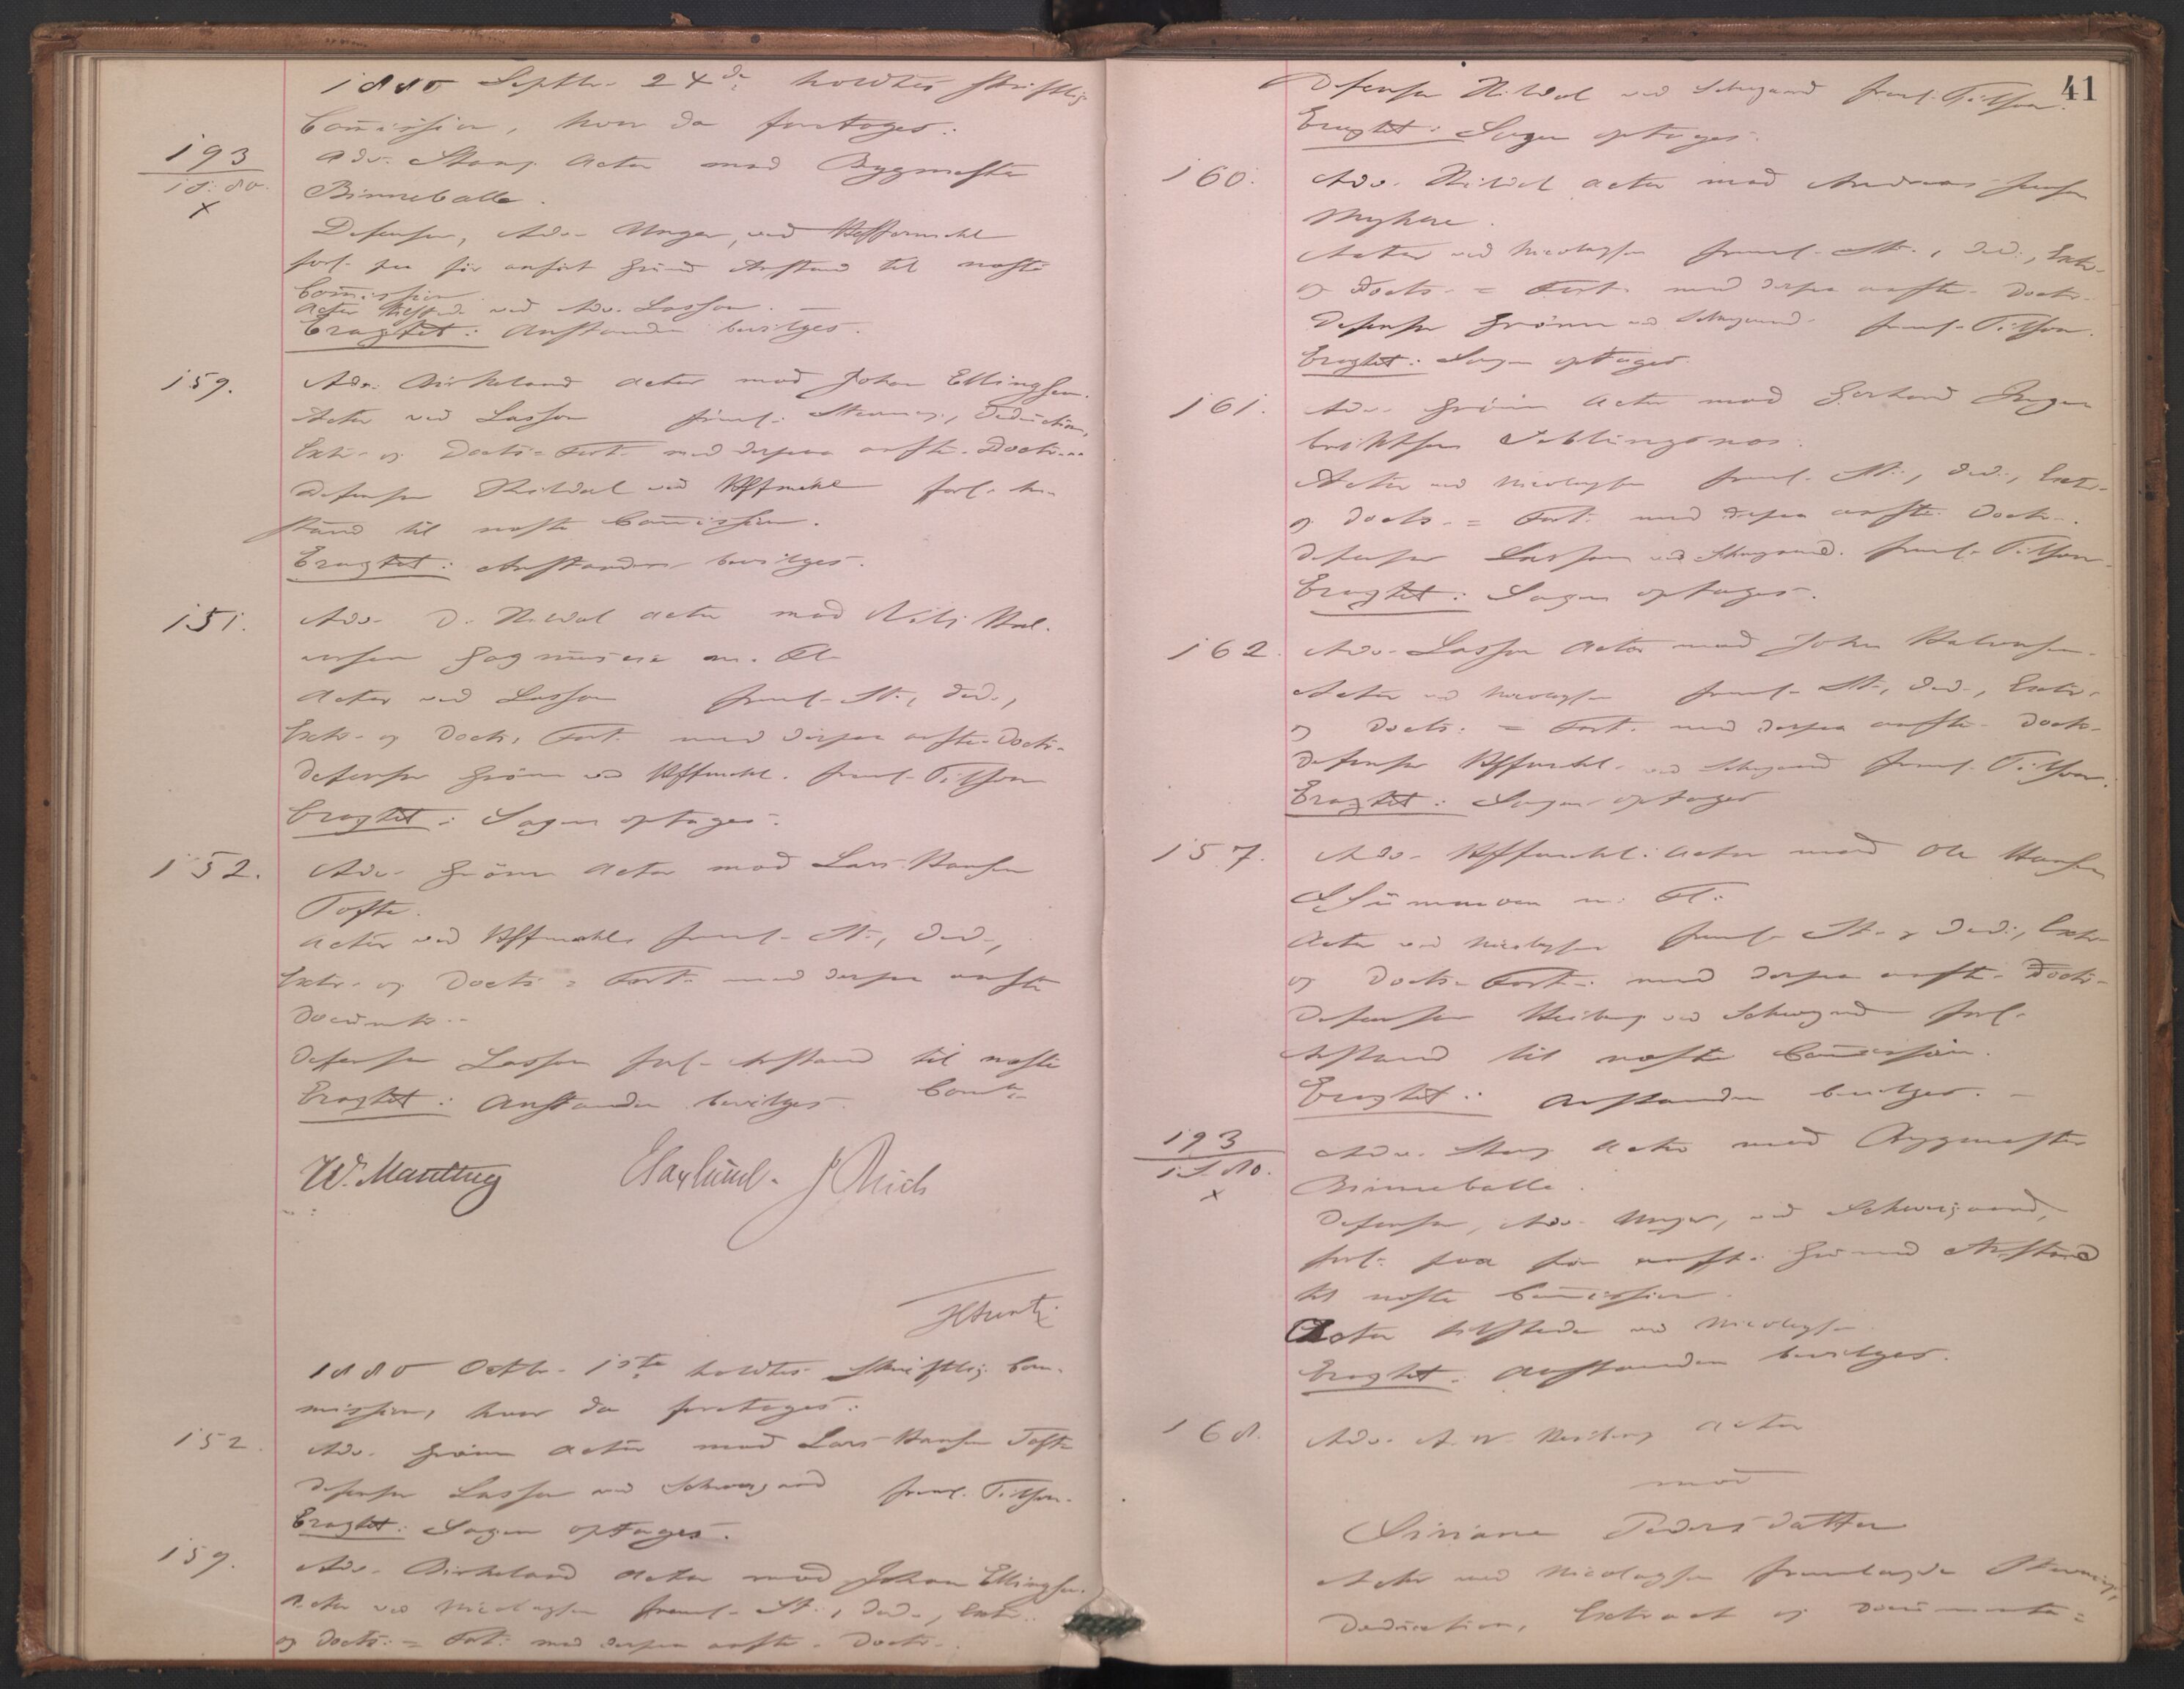 1880 Septbr. 24de holdtes skriftlig
Commission, hvor da foretoges:
193
18. 80.
x
Adv. Stang Actor mod Bygmester
Binneballe.
Defensor, Adv. Unger, ved Heffermehl
forl. paa før anført Grund Anstand til næste
Commission
Actor tilstede ved Adv. Lasson. –
Eragtet: Anstanden bevilges.
159.
Adv. Birkeland Actor mod Johan Ellingsen.
Actor ved Lasson freml. Stevning, Deduction,
Extr. og Docts. = Fort. med derpaa anfte. Doctr.
Defensor Rildal ved Heffermehl forl. An-
stand til næste Commission.
Eragtet: Anstanden bevilges.
151.
Adv. D. Rildal Actor mod Nils Hal-
vorsen m. Fl.
Actor ved Lasson freml. St., Ded.,
Extr. og Docts. Fort. med derpaa anfte. Doctr.
Defensor Grönn ved Heffermehl. freml. Tilsvar
Eragtet: Sagen optages.
152.
Adv. Grönn Actor mod Lars Hansen
Tofte.
Actor ved Heffermehl freml. St., Ded.,
Extr. og Docts = Fort. med derpaa anfte
Documtr.
Defensor Lasson forl. Anstand til næste
Comn.
Eragtet: Anstanden bevilges.
W. Manthey J Reich
1880 Octbr. 1ste holdtes skriftlig Com-
mission, hvor da foretoges:
152.
Adv. Grönn Actor mod Lars Hansen Tofte
Defensor Lasson ved Schweigaard freml. Tilsvar.
Eragtet: Sagen optages.
159.
Adv. Birkeland Actor mod Johan Ellingsen.
Actor ved Nicolaysen freml. St., Ded., Extr.
og Docts. = Fort. med derpaa anfte. Doctr.
41
Defensor Rildal ved Schweigaard freml. Tilsvar.
Eragtet: Sagen optages.
160.
Adv. Rildal Actor mod Andreas Jensen
Myhre.
Actor ved Nicolaysen freml. St., Ded., Extr.
og Docts. = Fort. med derpaa anfte. Doctr.
Defensor Grönn ved Schweigaard. freml. Tilsvar.
Eragtet: Sagen optages
161.
Adv. Grönn Actor mod Gerhard
Actor ved Nicolaysen freml. St., Ded., Extr.
og Docts. = Fort. med derpaa anfte. Doctr.
Defensor Lasson ved Schweigaard. freml. Tilsvar.
Eragtet: Sagen optages.
162.
Adv. Lasson Actor mod Johan Halvorsen.
Actor ved Nicolaysen freml. St., Ded., Extr.
og Docts. = Fort. med derpaa anfte. Doctr.
Defensor Heffermehl ved Schweigaard freml. Tilsvar.
Eragtet: Sagen optages
157.
Adv. Heffermehl. Actor mod Ole Hansen
m. Fl.
Actor ved Nicolaysen freml. St., Ded., Extr.
og Docts. Fort. med derpaa anfte. Doctr.
Defensor Heiberg ved Schweigaard forl.
Anstand til næste Commission.
Eragtet: Anstanden bevilges. –
193
18. 80.
x
Adv. Stang Actor mod Bygmester
Binneballe.
Defensor, Adv. Unger, ved Schweigaard,
forl. paa før anft. Grund Anstand
til næste Commission.
Actor tilstede ved Nicolaysen
Eragtet: Anstanden bevilges.
168.
Adv. A. W. Heiberg Actor
mod
Siriane Pedersdatter
Actor ved Nicolaysen fremlagde Stevning,
Deduction, Extract og Documenta=